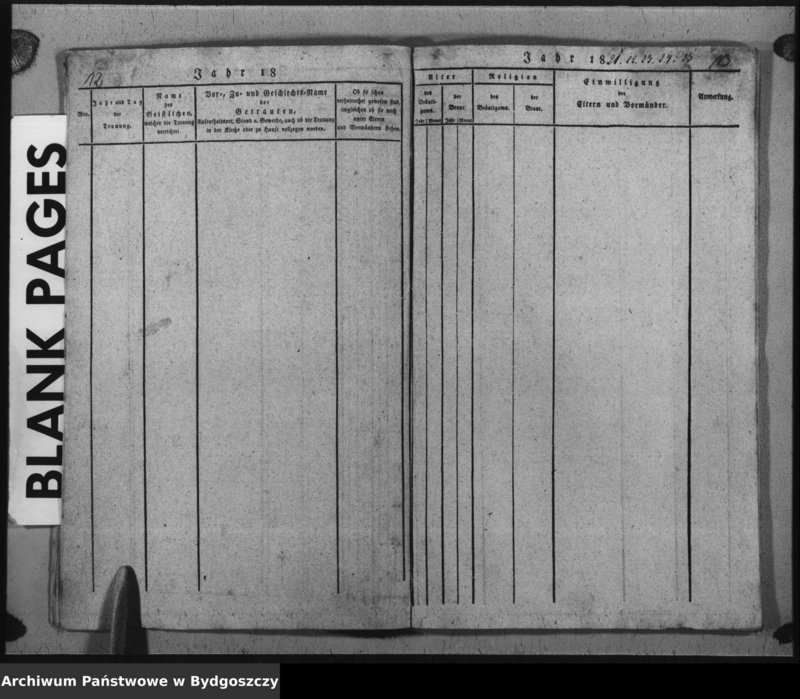 BLANK PAGES
12
Jahr 18
Nro.
Jahr und Tag
der
Trauung.
Name
des
Geistlichen,
welcher die Trauung
verrichtet.
Vor-, Zu- und Geschlechts-Name
der
Getrauten,
Aufenthaltsort, Stand u. Gewerbe, auch ob die Trauung
in der Kirche oder zu Hause vollzogen worden.
Ob sie schon
verheirathet gewesen sind,
imgleichen ob sie noch
unter Eltern
und Vormündern stehen.
Jahr 1821. 22. 23. 24. 25
13
Alter
des
Bräuti-
gams.
der
Braut.
Jahr Monat Jahr Monat
Religion
des
Bräutigams.
der
Braut.
Einwilligung
der
Eltern und Vormünder.
Anmerkung.
Archiwum Państwowe w Bydgoszczy